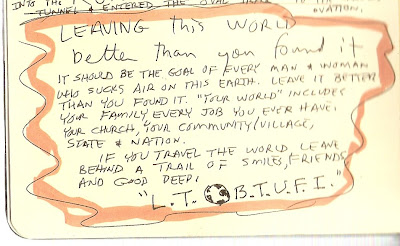 INTO THE
TUNNEL & ENTERED THE OVAL OVATION.
LEAVING this WORLD
better than you found it
IT SHOULD BE THE GOAL OF EVERY MAN & WOMAN
WHO SUCKS AIR ON THIS EARTH. LEAVE IT BETTER
THAN YOU FOUND IT. "YOUR WORLD" INCLUDES
YOUR FAMILY, EVERY JOB YOU EVER HAVE,
YOUR CHURCH, YOUR COMMUNITY/VILLAGE,
STATE & NATION.
IF YOU TRAVEL THE WORLD LEAVE
BEHIND A TRAIL OF SMILES, FRIENDS
AND GOOD DEED!
"L.T. B.T.U.F.I."